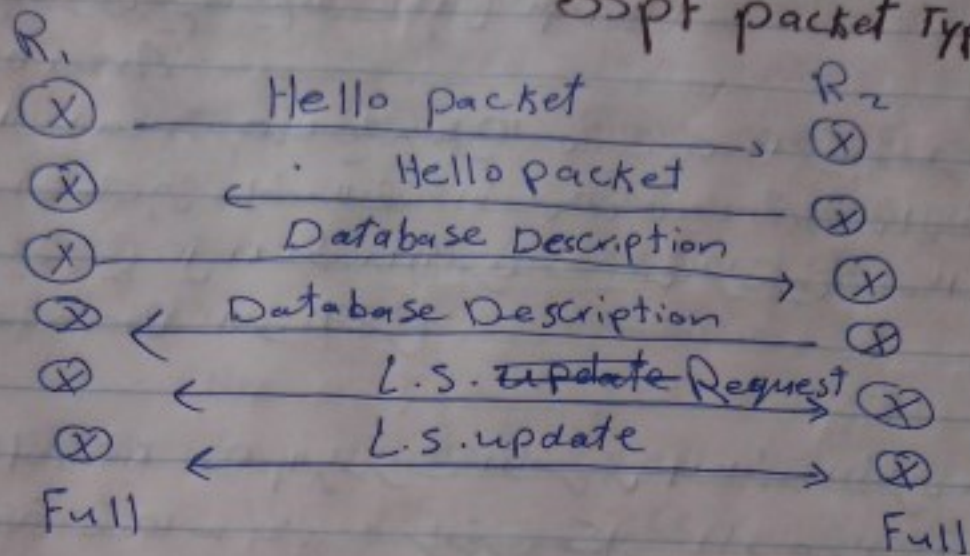 ospf packet Typ
R1
R2
Hello packet
Hello packet
Database Description
Database Description
L.S. update Request
L.S. update
Full
Full